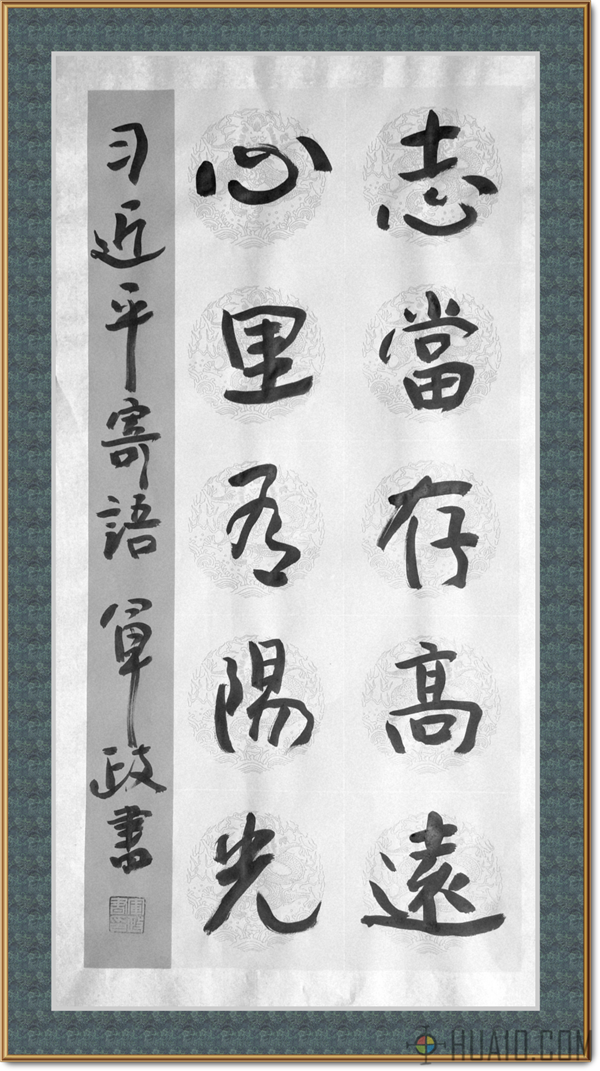 志當存高遠
心里有陽光
习近平寄語 軍政書
HUAIO.COM